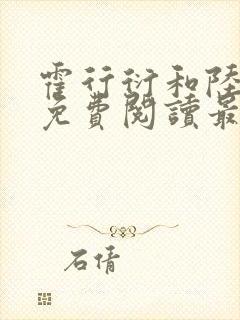 霍行衍和陸
免費閱讀最
石倩